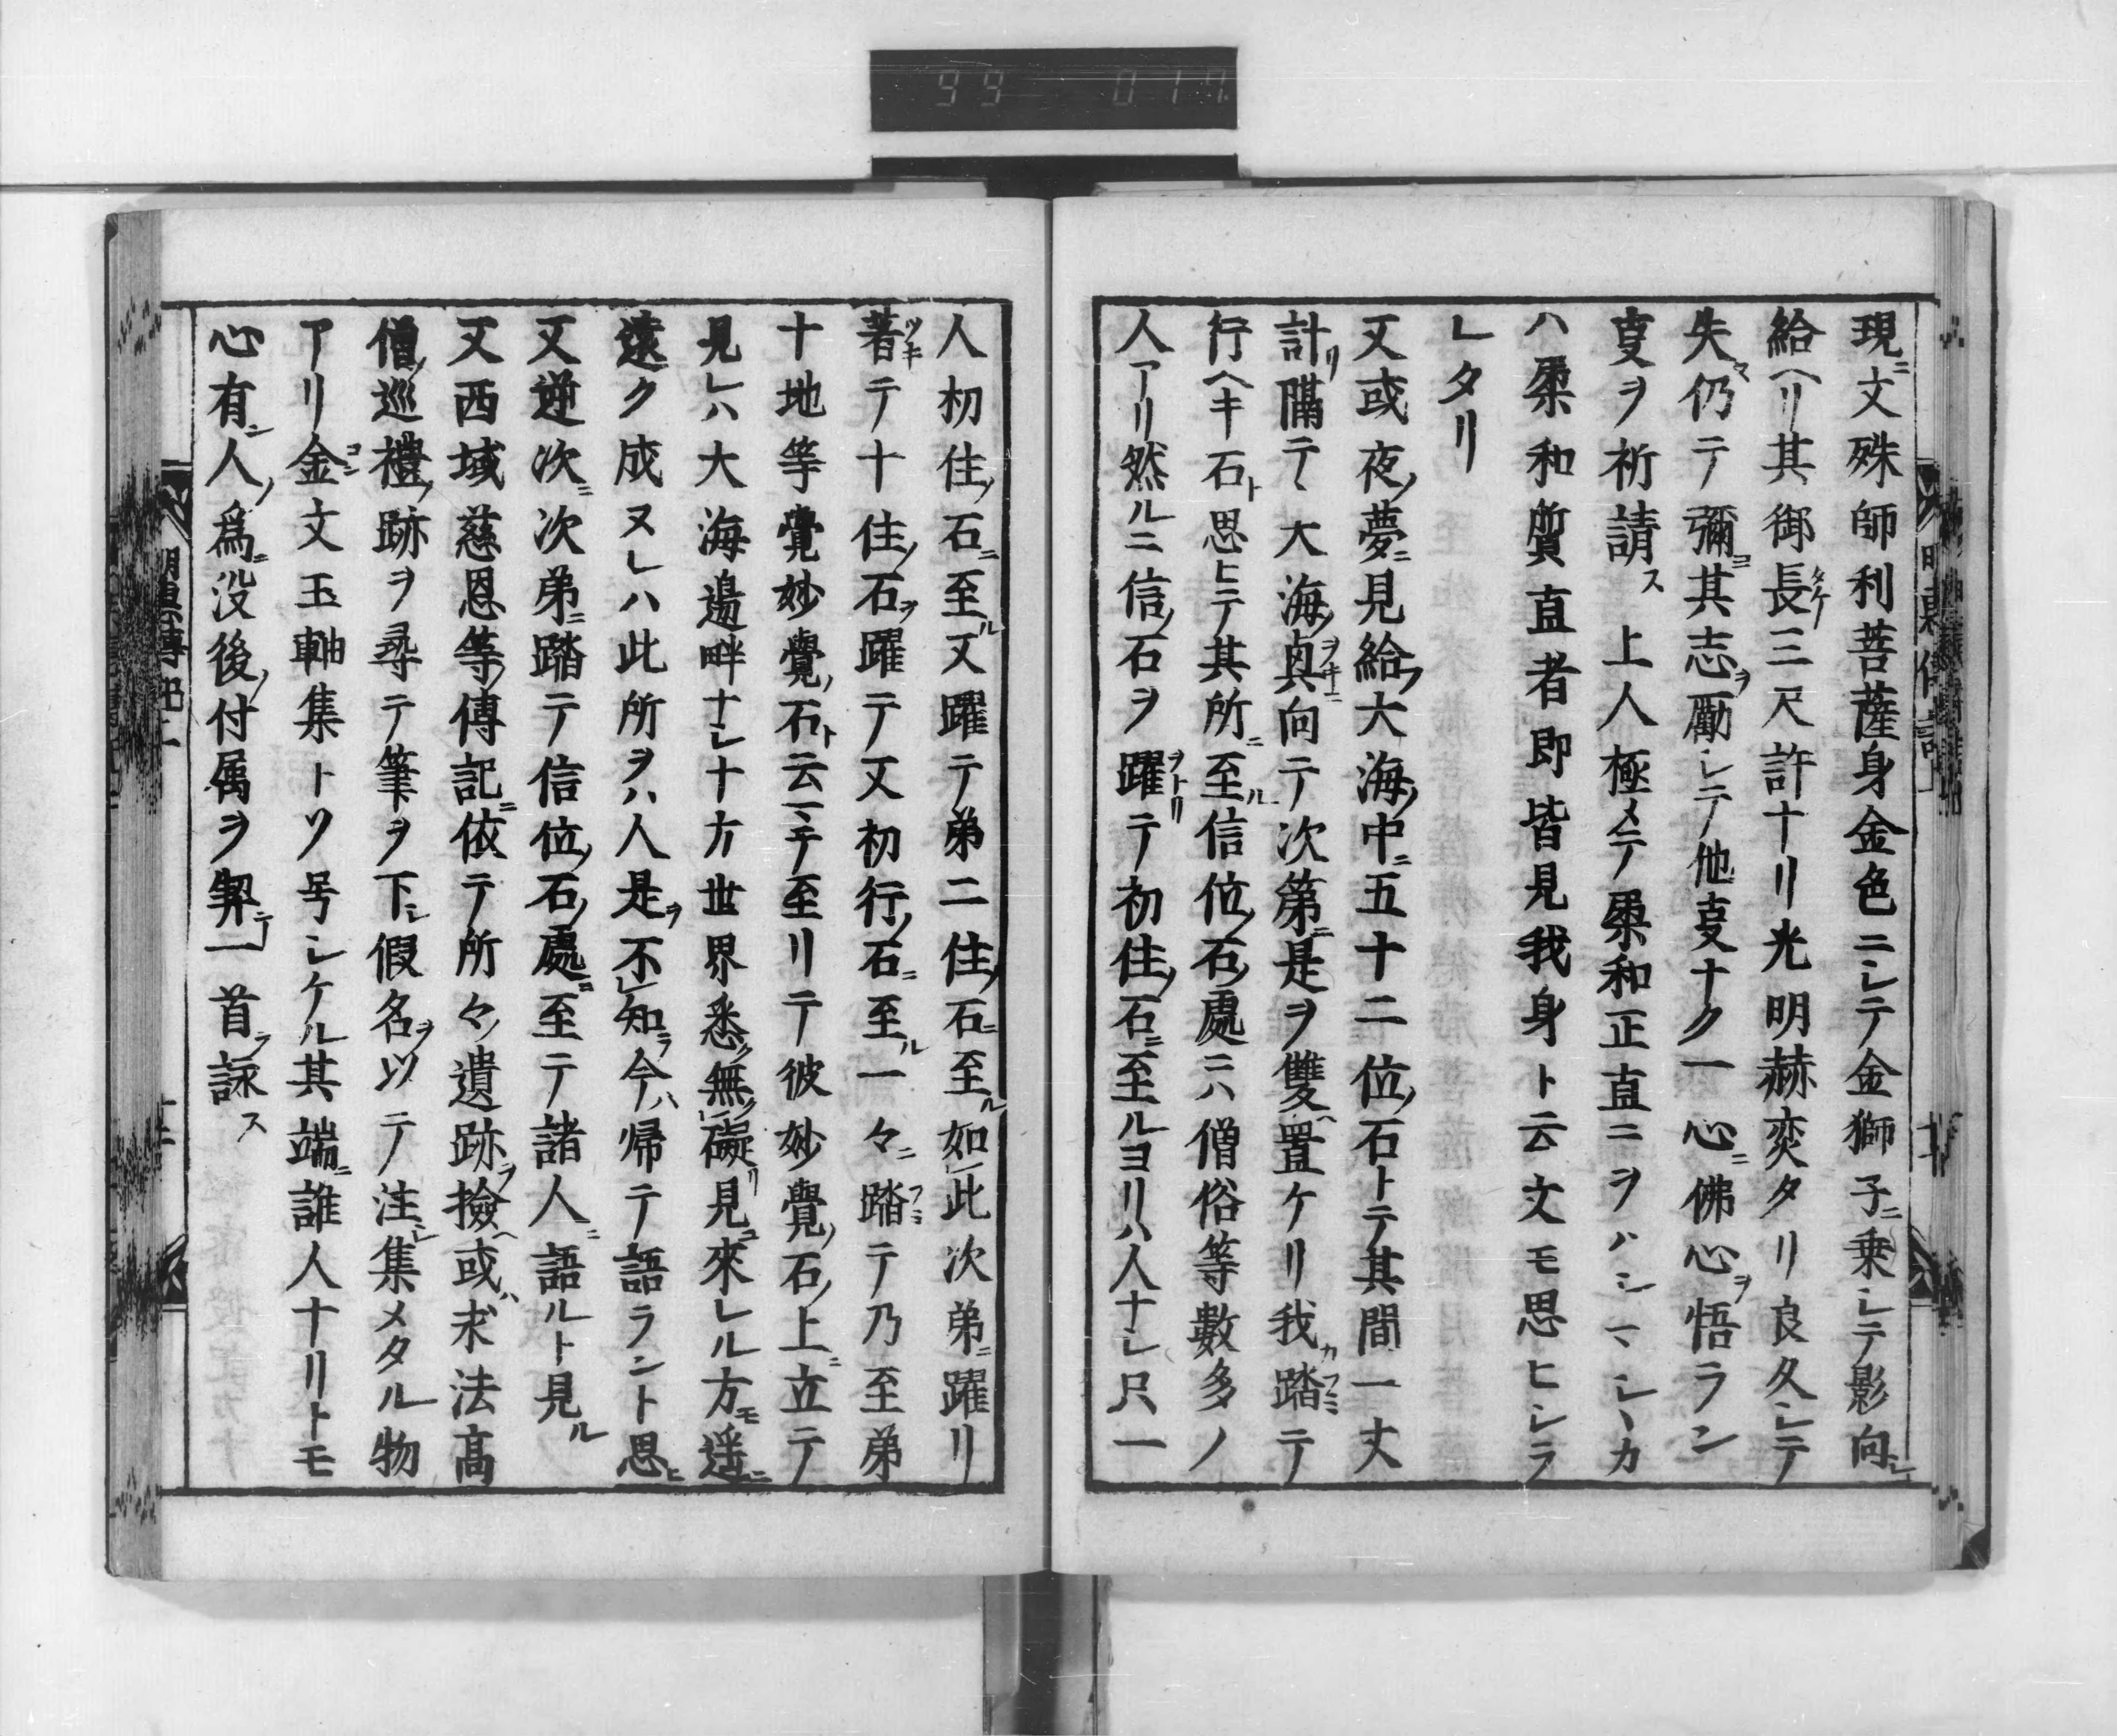 99 017
現ニ文殊師利菩薩身金色ニシテ金獅子ニ乗シテ影向シ
給ヘリ其御長タケ三尺許ナリ光明赫奕タリ良久シテ
失マ仍テ彌ヨ其志ヲ勵シテ他叓ナク一心ニ佛心ヲ悟ラン
叓ヲ祈請ス上人極メテ柔和正直ニヲハシマシヽカ
ハ柔和質直者即皆見我身ト云文モ思ヒシラ
レタリ
又或夜ノ夢ニ見給フ大海ノ中ニ五十二位ノ石トテ其間一丈
計リ隔テヽ大海ノ眞ヲキニ向テ次第ニ是ヲ雙ヘ置ケリ我カ踏フミテ
行ヘキ石ト思ヒテ其所ニ至ル信位ノ石ノ處ニハ僧俗等數多ノ
人アリ然ルニ信ノ石ヲ躍ヲトリテ初住ノ石ニ至ルヨリハ人ナシ只一
人初住ノ石ニ至ル又躍テ弟二住ノ石ニ至ル如此次弟ニ躍リ
著ツキテ十住ノ石ヲ躍テ又初行ノ石ニ至ル一々ニ踏フミテ乃至弟
十地等覺妙覺ノ石ト云マテ至リテ彼妙覺ノ石ノ上ニ立テ
見レハ大海邊畔ナシ十方世界悉ク無礙リ見ユ來レル方モ遥ニ
遠ク成ヌレハ此所ヲハ人是ヲ不知ラ今ハ帰テ語ラント思ヒ
又逆次ニ次弟ニ踏テ信位ノ石ノ處ニ至テ諸人ニ語ルト見ル
又西域慈恩等ノ傳記ニ依テ所々ノ遺跡ヲ撿ヘ或ハ求法高
僧ノ巡禮ノ跡ヲ尋テ筆ヲ下シ假名ヲ以テ注シ集メタル物
アリ金コン文玉軸集トソ号シケル其端ニ誰人ナリトモ
心有ン人ノ爲ニ没後ノ付属ヲ契テ一首ヲ詠ス